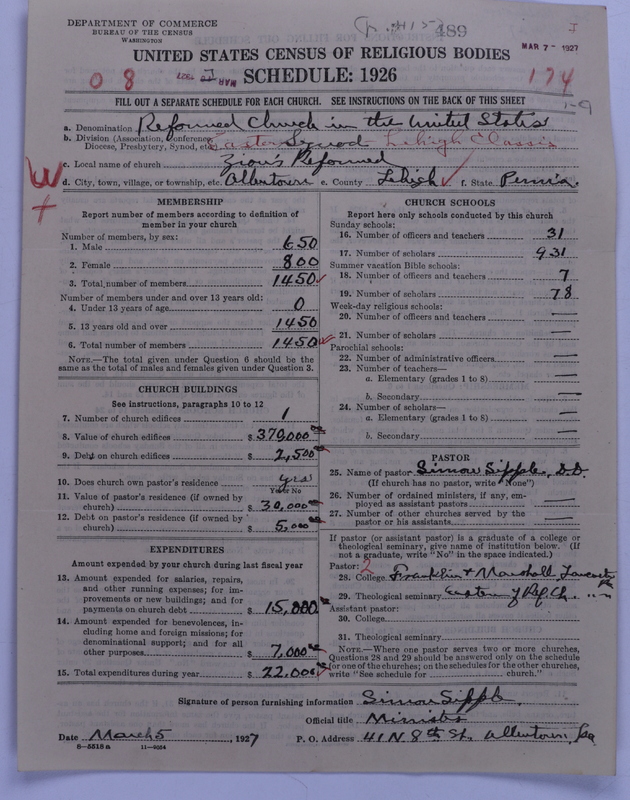 DEPARTMENT OF COMMERCE
BUREAU OF THE CENSUS
WASHINGTON
489
I
MAR 7 - 1927
UNITED STATES CENSUS OF RELIGIOUS BODIES
SCHEDULE: 1926
0 8
174
1-9
FILL OUT A SEPARATE SCHEDULE FOR EACH CHURCH. SEE INSTRUCTIONS ON THE BACK OF THIS SHEET
a. Denomination Reformed Church in the United States
b. Division (Association, Conference, Diocese, Presbytery, Synod, etc.) Eastern Synod Lehigh Classis
c. Local name of church Zion's Reformed
d. City, town, village, or township, etc. Allentown e. County Lehigh f. State Penna.
MEMBERSHIP
Report number of members according to definition of
member in your church
Number of members, by sex:
1. Male 650
2. Female 800
3. Total number of members 1450
Number of members under and over 13 years old:
4. Under 13 years of age 0
5. 13 years old and over 1450
6. Total number of members 1450
NOTE.—The total given under Question 6 should be
same as the total of males and females given under Question 3.
CHURCH BUILDINGS
See instructions, paragraphs 10 to 12
7. Number of church edifices 1
8. Value of church edifices $ 370,000
9. Debt on church edifices $ 2,500
10. Does church own pastor's residence yes
Yes or No
11. Value of pastor's residence (if owned by
church) $ 30,000
12. Debt on pastor's residence (if owned by
church) $ 5,000
EXPENDITURES
Amount expended by your church during last fiscal year
13. Amount expended for salaries, repairs,
and other running expenses; for im-
provements or new buildings; and for
payments on church debt $ 15,000
14. Amount expended for benevolences, in-
cluding home and foreign missions; for
denominational support; and for all
other purposes $ 7,000
15. Total expenditures during year $ 22,000
CHURCH SCHOOLS
Report here only schools conducted by this church
Sunday schools:
16. Number of officers and teachers 31
17. Number of scholars 931
Summer vacation Bible schools:
18. Number of officers and teachers 7
19. Number of scholars 78
Week-day religious schools:
20. Number of officers and teachers —
21. Number of scholars —
Parochial schools:
22. Number of administrative officers —
23. Number of teachers—
a. Elementary (grades 1 to 8) —
b. Secondary —
24. Number of scholars—
a. Elementary (grades 1 to 8) —
b. Secondary —
PASTOR
25. Name of pastor Simon Sipple, D.D.
(If church has no pastor, write "None")
26. Number of ordained ministers, if any, em-
ployed as assistant pastors —
27. Number of other churches served by the
pastor or his assistants —
If pastor (or assistant pastor) is a graduate of a college or
theological seminary, give name of institution below. (If
not a graduate, write "No" in the space indicated.)
Pastor: 2
28. College Franklin & Marshall Lancaster Pa
29. Theological seminary Eastern of Ref Ch. " "
Assistant pastor:
30. College
31. Theological seminary
NOTE.—Where one pastor serves two or more churches,
Questions 28 and 29 should be answered only on the schedule
for one of the churches; on the schedules for the other churches,
write "See schedule for church."
Signature of person furnishing information Simon Sipple
Official title Minister
Date March 5, 1927 P. O. Address 41 N 8th St. Allentown, Pa
8—5518 a 11—9564